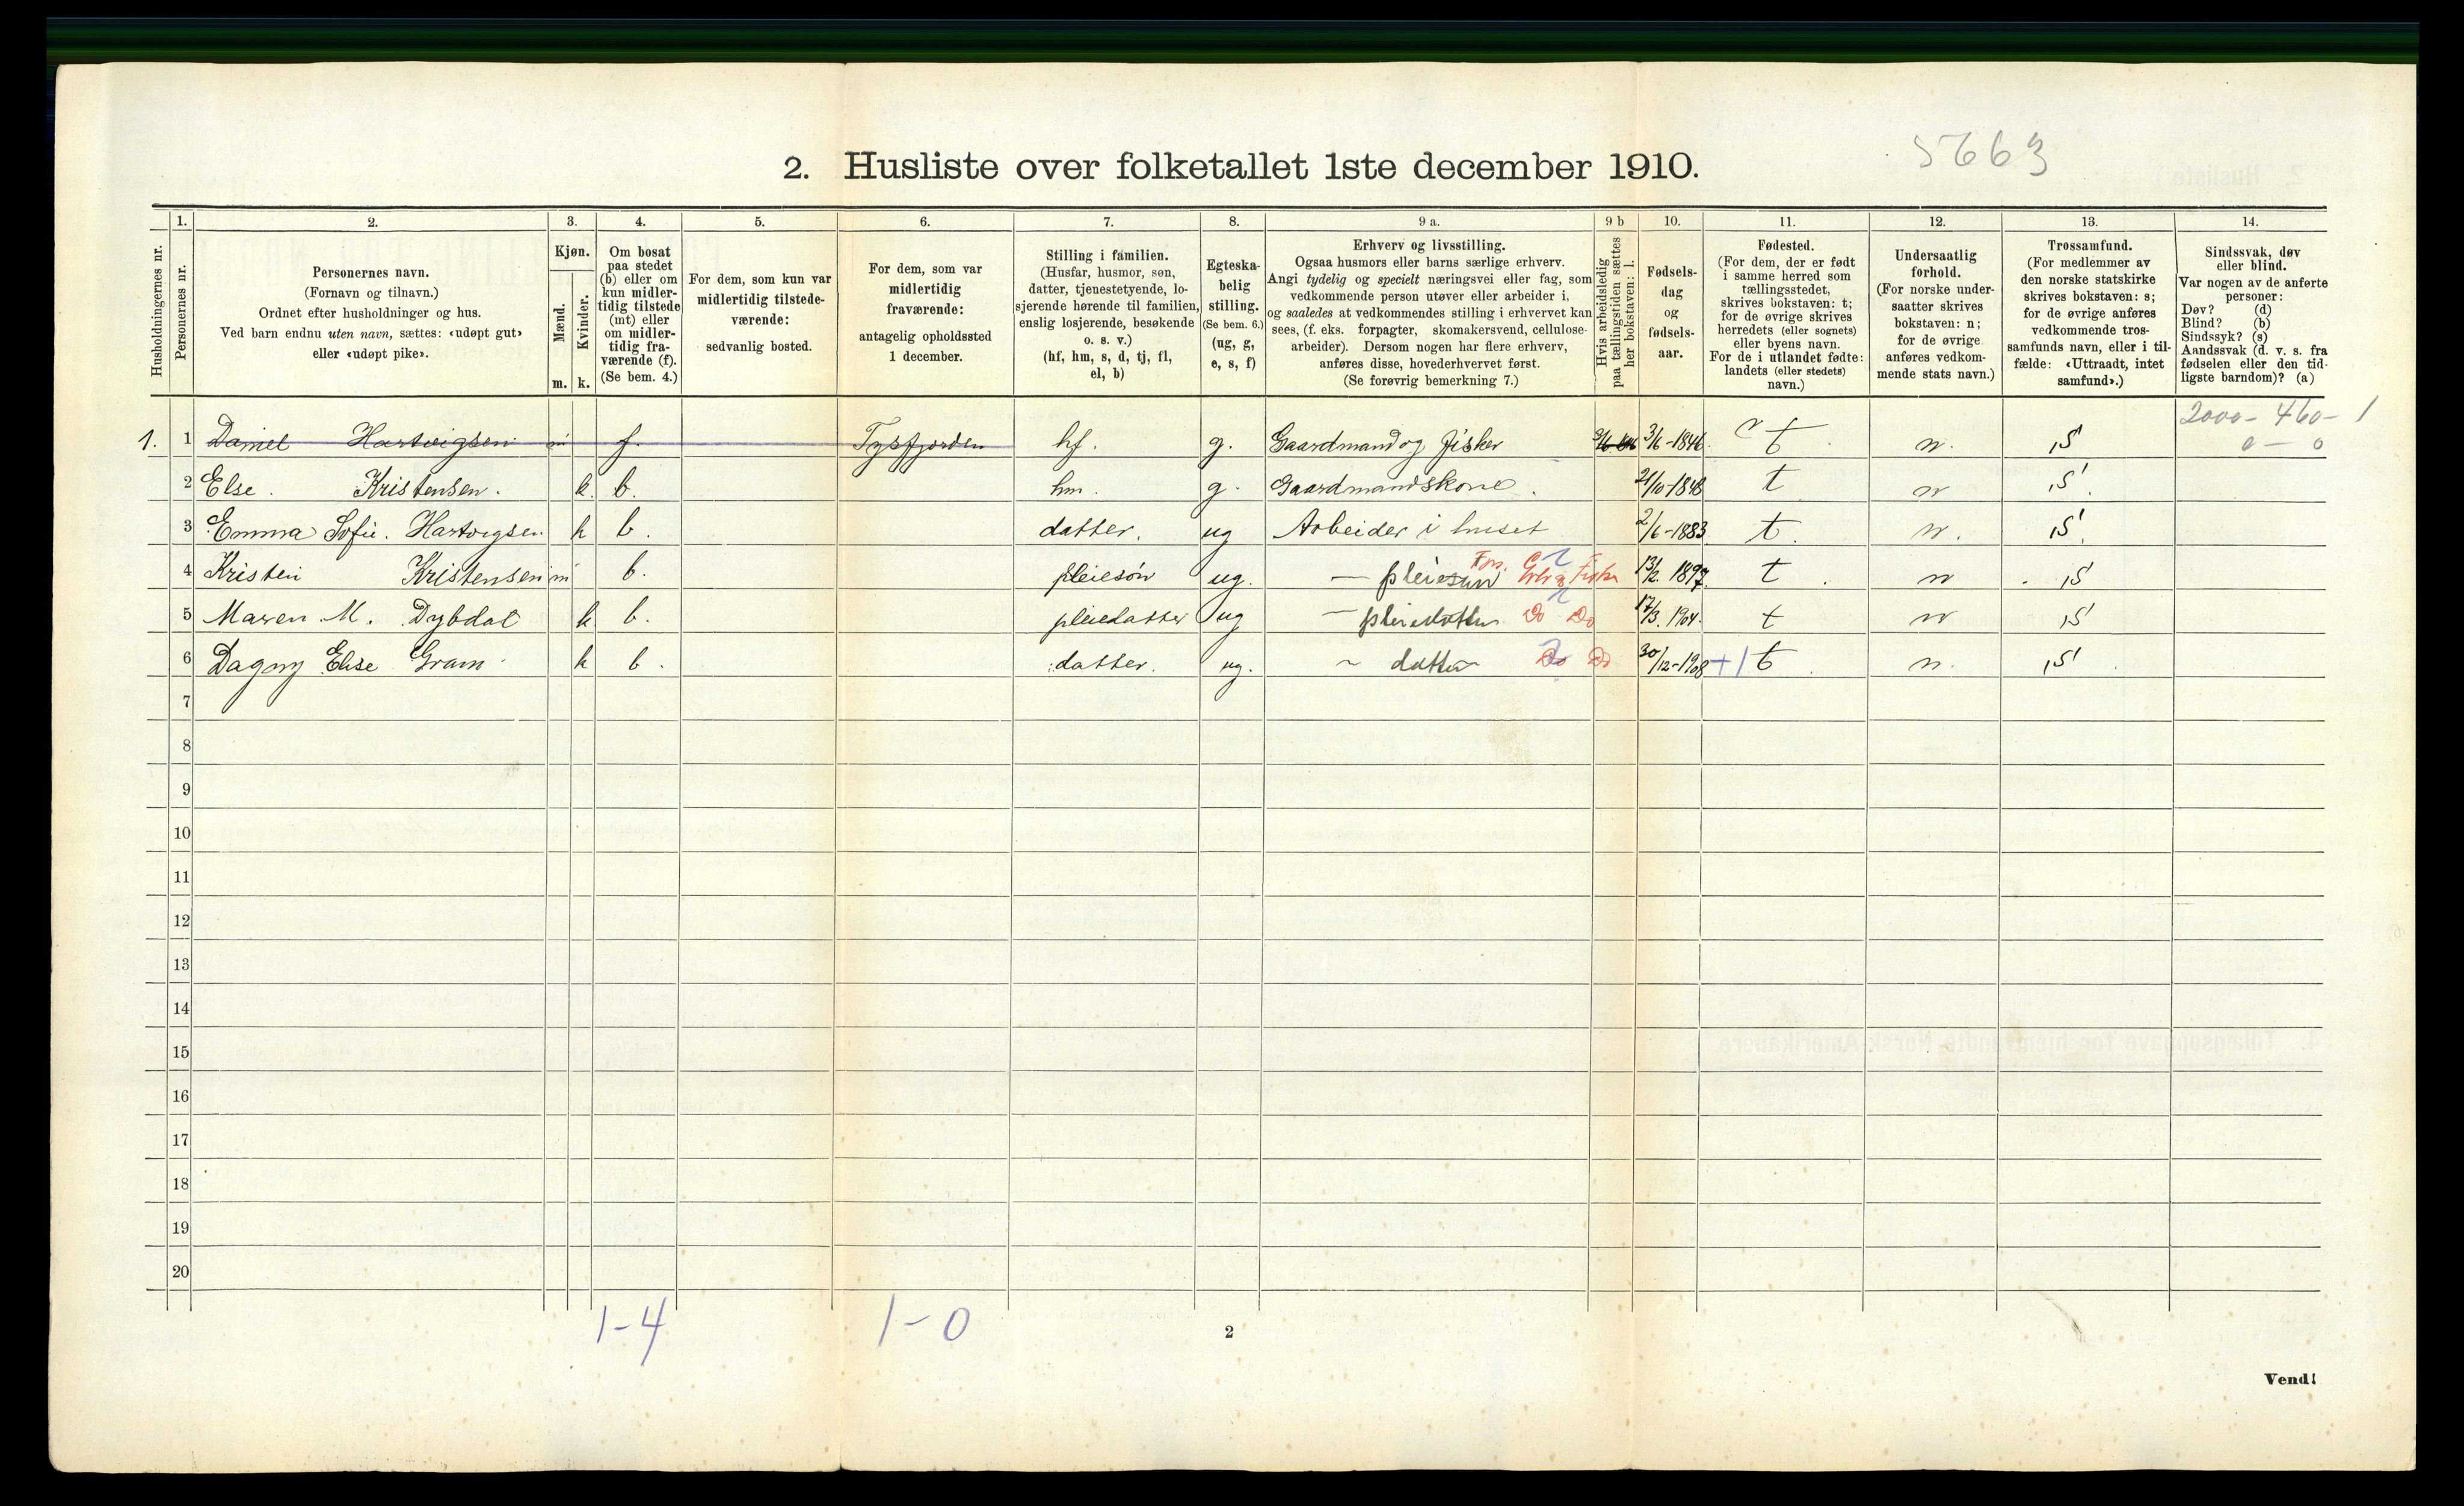 5663
2. Husliste over folketallet 1ste december 1910.
Husholdningernes nr.
1. Personernes nr.
2. Personernes navn.
(Fornavn og tilnavn.)
Ordnet efter husholdninger og hus.
Ved barn endnu uten navn, sættes: «udøpt gut»
eller «udøpt pike».
3. Kjøn.
Mænd. m.
Kvinder. k.
4. Om bosat
paa stedet
(b) eller om
kun midler-
tidig tilstede
(mt) eller
om midler-
tidig fra-
værende (f).
(Se bem. 4.)
5. For dem, som kun var
midlertidig tilstede-
værende:
sedvanlig bosted.
6. For dem, som var
midlertidig
fraværende:
antagelig opholdssted
1 december.
7. Stilling i familien.
(Husfar, husmor, søn,
datter, tjenestetyende, lo-
sjerende hørende til familien,
enslig losjerende, besøkende
o. s. v.)
(hf, hm, s, d, tj, fl,
el, b)
8. Egteska-
belig
stilling.
(Se bem. 6.)
(ug, g,
e, s, f)
9 a. Erhverv og livsstilling.
Ogsaa husmors eller barns særlige erhverv.
Angi tydelig og specielt næringsvei eller fag, som
vedkommende person utøver eller arbeider i,
og saaledes at vedkommendes stilling i erhvervet kan
sees, (f. eks. forpagter, skomakersvend, cellulose-
arbeider). Dersom nogen har flere erhverv,
anføres disse, hovederhvervet først.
(Se forøvrig bemerkning 7.)
9 b Hvis arbeidsledig
paa tællingstiden sættes
her bokstaven: l.
10. Fødsels-
dag
og
fødsels-
aar.
11. Fødested.
(For dem, der er født
i samme herred som
tællingsstedet,
skrives bokstaven: t;
for de øvrige skrives
herredets (eller sognets)
eller byens navn.
For de i utlandet fødte:
landets (eller stedets)
navn.)
12. Undersaatlig
forhold.
(For norske under-
saatter skrives
bokstaven: n;
for de øvrige
anføres vedkom-
mende stats navn.)
13. Trossamfund.
(For medlemmer av
den norske statskirke
skrives bokstaven: s;
for de øvrige anføres
vedkommende tros-
samfunds navn, eller i til-
fælde: «Uttraadt, intet
samfund».)
14. Sindssvak, døv
eller blind.
Var nogen av de anførte
personer:
Døv? (d)
Blind? (b)
Sindssyk? (s)
Aandssvak (d. v. s. fra
fødselen eller den tid-
ligste barndom)? (a)
2000 - 460 - 1
0 - 0
1. 1 Daniel Hartvigsen m f. Tysfjorden hf. g. Gaardmand og Fisker 3/6-1846 t n. S
2 Else Kristensen. k. b. hm. g. Gaardmandskone. 21/10-1848 t n S.
3 Emma Sofie. Hartvigsen k b. datter. ug Arbeider i huset 2/6-1883 t. n. S.
4 Kristen Kristensen m b. pleiesøn ug. — pleiesøn Fors. Fisker 13/2 1897. t. n S
5 Maren M. Dybdal k b. pleiedatter ug — pleiedatter Do Do 17/3. 1904. t n S
6 Dagny Elise Gram k b. datter. ug. ~ datter Do Do 30/12-1908 +1 t. n. S
7
8
9
10
11
12
13
14
15
16
17
18
19
20
1-4 1-0
2
Vend!